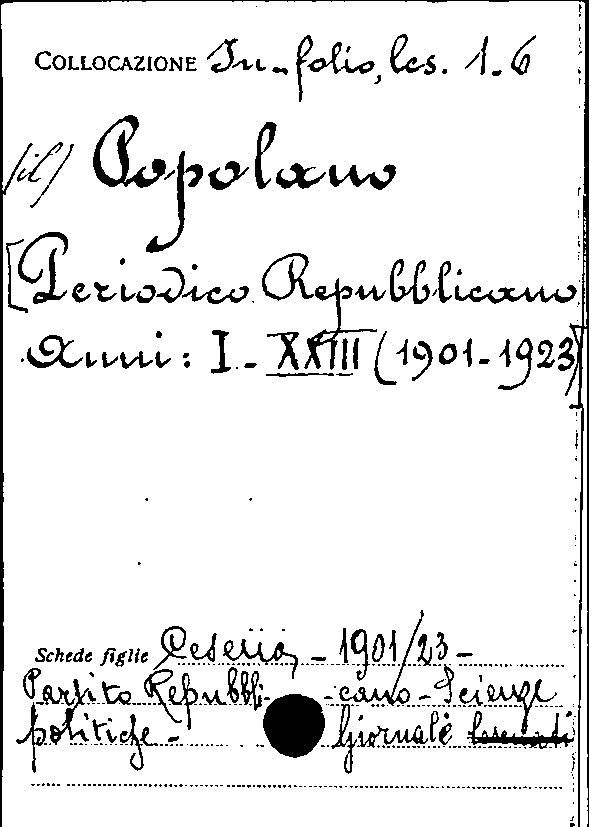 COLLOCAZIONE In-folio, Ces. 1.6
(il) Popolano
[Periodico Repubblicano
Anni: I - XXIII (1901-1923)]
Schede figlie Cesena, - 1901/23 -
Partito Repubbli- -cano - Scienze
politiche - Giornale